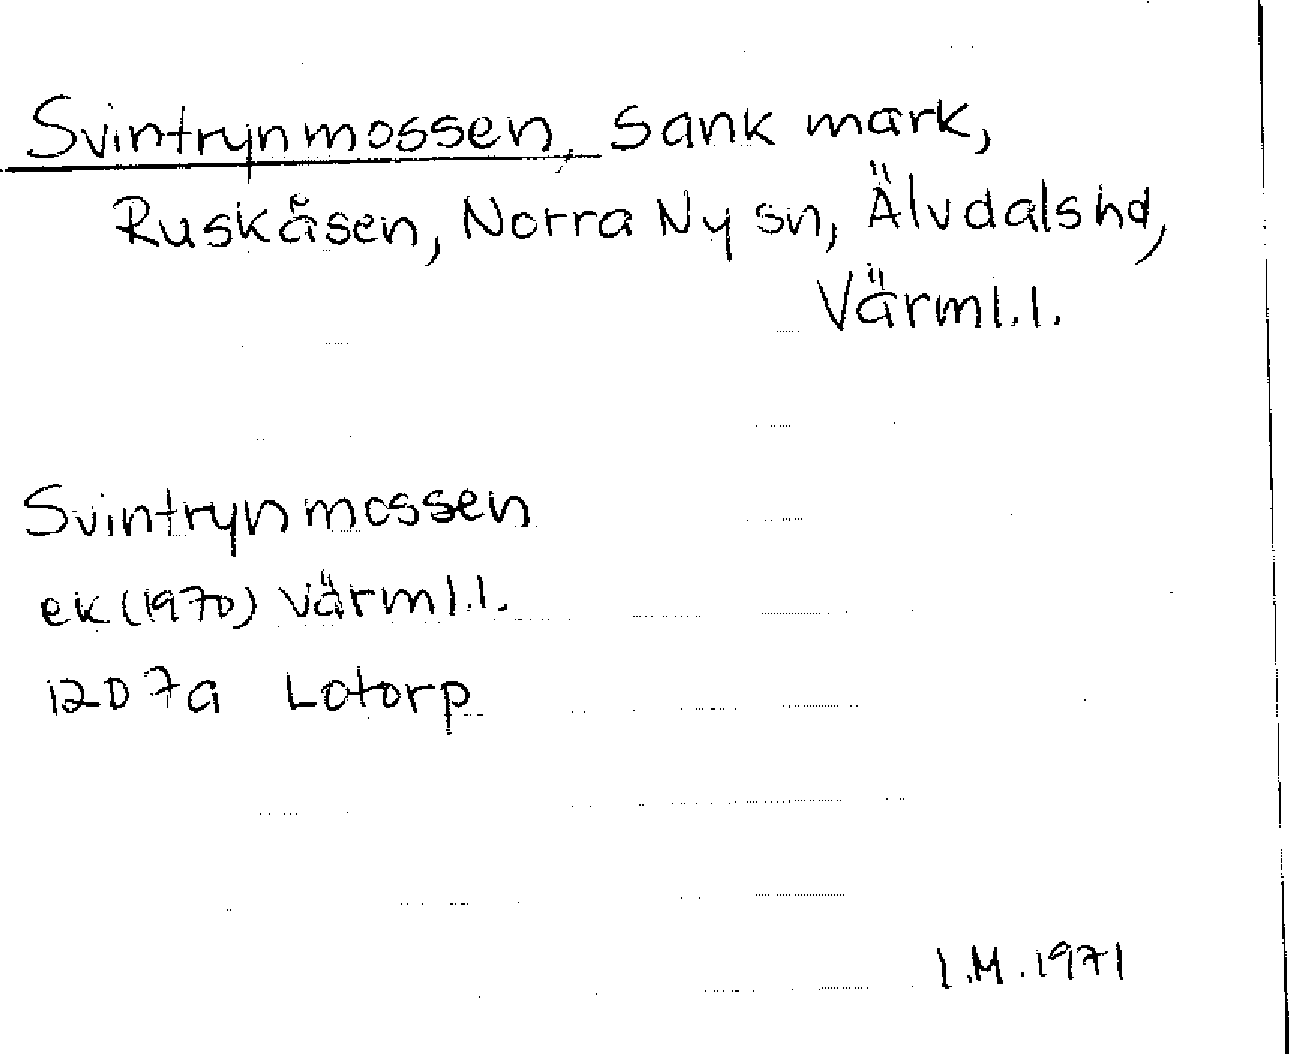 Svintrynmossen, sank mark,
Ruskåsen, Norra Ny sn, Älvdalshd,
Värml.l.
Svintrynmossen
ek (1970) Värml.l.
12D 7a Lotorp
I.M. 1971